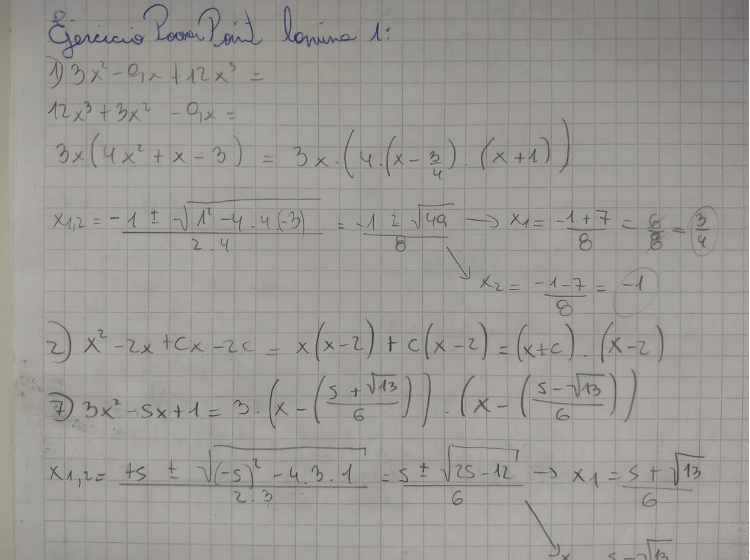 Ejercicio Power Point lamina 1:
1) 3x² - 9x + 12x³ =
12x³ + 3x² - 9x =
3x(4x² + x - 3) = 3x·(4·(x - 3/4)·(x + 1))
x1,2 = -1 ± √(1² - 4·4(-3)) / 2·4 = -1 ± √49 / 8 → x1 = -1+7 / 8 = 6/8 = 3/4
x2 = -1-7 / 8 = -1
2) x² - 2x + cx - 2c = x(x-2) + c(x-2) = (x+c)·(x-2)
7) 3x² - 5x + 1 = 3·(x - (5 + √13 / 6))·(x - (5 - √13 / 6))
x1,2 = +5 ± √((-5)² - 4·3·1) / 2·3 = 5 ± √(25-12) / 6 → x1 = 5 + √13 / 6
5 - √13